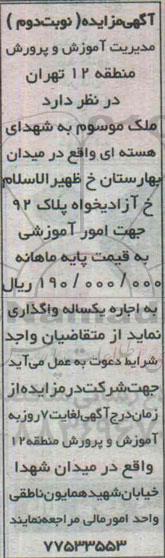 آگهی مزایده( نوبت دوم )
مدیریت آموزش و پرورش
منطقه ۱۲ تهران
در نظر دارد
ملک موسوم به شهدای
هسته ای واقع در میدان
بهارستان خ ظهیر الاسلام
خ آزادیخواه پلاک ۹۲
جهت امور آموزشی
به قیمت پایه ماهانه
۱۹۰/۰۰۰/۰۰۰ ریال
به اجاره یکساله واگذاری
نماید از متقاضیان واجد
شرایط دعوت به عمل می آید
جهت شرکت در مزایده از
زمان درج آگهی لغایت ۷ روز به
آموزش و پرورش منطقه ۱۲
واقع در میدان شهدا
خیابان شهید همایون ناطقی
واحد امور مالی مراجعه نمایند
۷۷۵۳۳۵۵۳